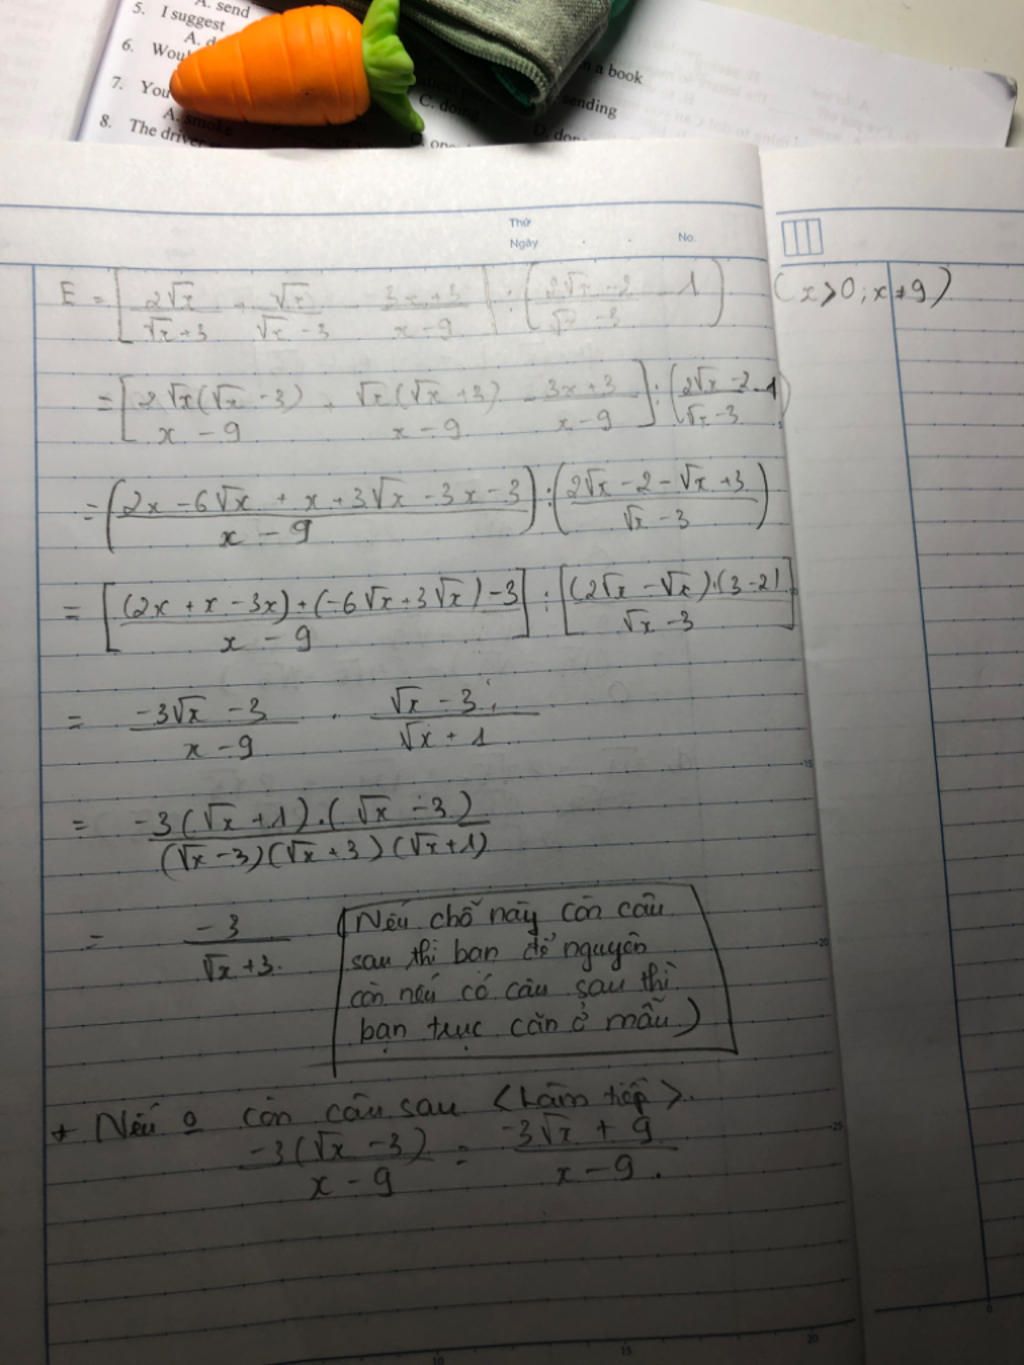 A. send
5. I suggest
6. Woul
7. You
A. smoke
8. The driver
C. doing
n a book
sending
D. don
Thứ
Ngày
No.
E = [2√x/(√x+3) + √x/(√x-3) - (3x+3)/(x-9)] : ((2√x-2)/(√x-3) - 1) (x>0; x≠9)
= [2√x(√x-3)/(x-9) + √x(√x+3)/(x-9) - (3x+3)/(x-9)] : ((2√x-2)/(√x-3) - 1)
= ((2x-6√x+x+3√x-3x-3)/(x-9)) : ((2√x-2-√x+3)/(√x-3))
= [((2x+x-3x)+(-6√x+3√x)-3)/(x-9)] : [((2√x-√x)·(3-2))/(√x-3)]
= (-3√x-3)/(x-9) · (√x-3)/(√x+1)
= (-3(√x+1)·(√x-3))/((√x-3)(√x+3)(√x+1))
= -3/(√x+3)
(Nếu chỗ này còn câu
sau thì bạn để nguyên
còn nếu có câu sau thì
bạn trục căn ở mẫu)
+ Nếu o còn câu sau <Làm tiếp>.
-3(√x-3)/(x-9) = (-3√x+9)/(x-9).
15
20
25
10
15
20
0